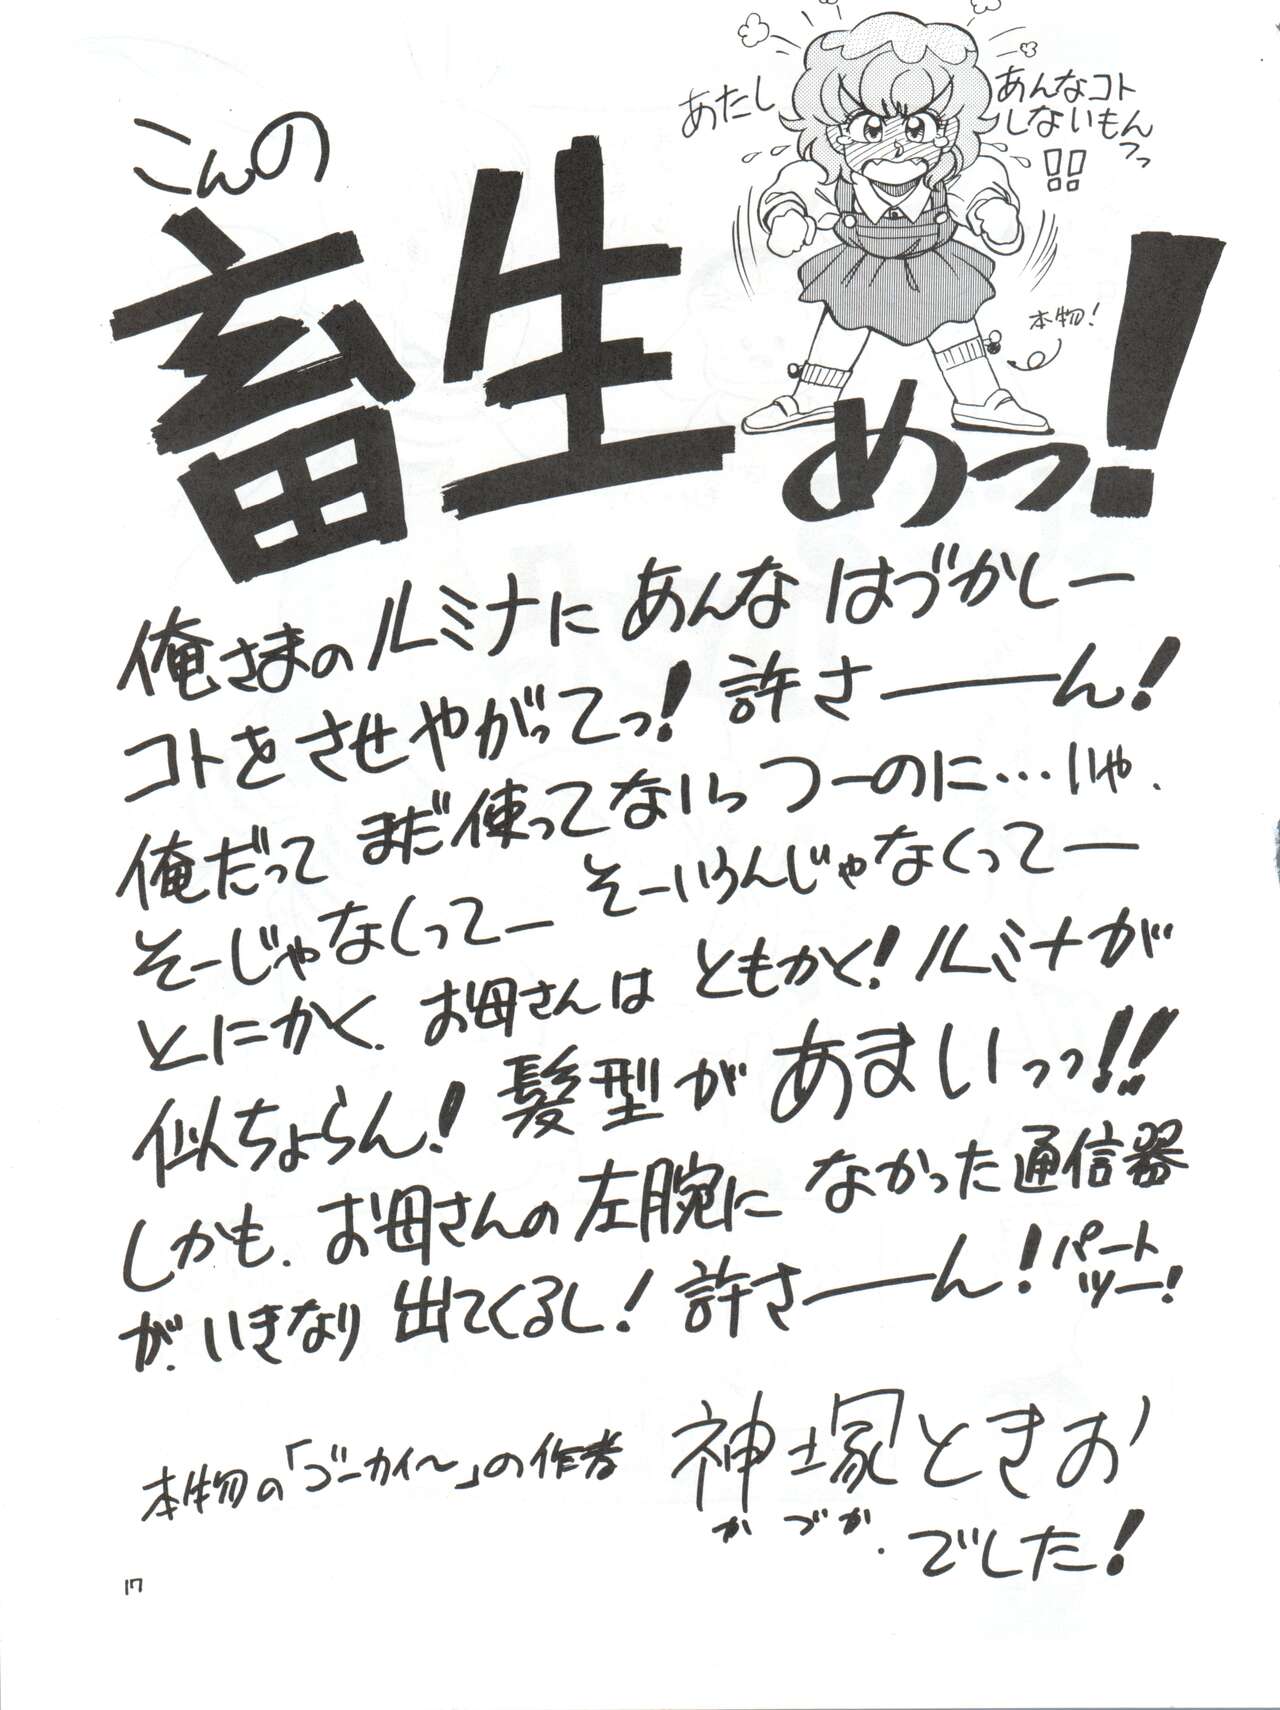 このの
畜生めっ!
あたし
あんなコト
しないもんっっ
!!
本物!
俺さまのルミナにあんなはづかしー
コトをさせやがってっ!許さーーん!
俺だってまだ使ってないっつーのに…いや、
そーじゃなくってーそーいうんじゃなくってー
とにかく、お母さんはともかく!ルミナが
似ちょらん!髪型があまいっっ!!
しかも、お母さんの左腕になかった通信器
が、いきなり出てくるし!許さーーん!パート
ツー!
本物の「ゴーカイ〜」の作者
神塚ときお
かづか、
でした!
17